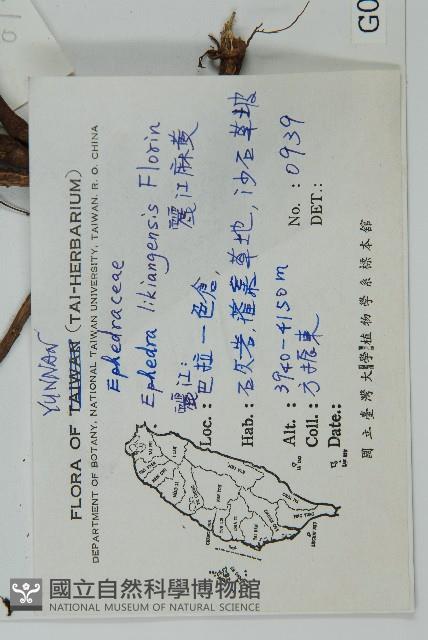 YUNNAN
FLORA OF TAIWAN (TAI-HERBARIUM)
DEPARTMENT OF BOTANY, NATIONAL TAIWAN UNIVERSITY, TAIWAN, R. O. CHINA
Ephedraceae
Ephedra likiangensis Florin
麗江麻黄
麗江:
Loc.: 巴拉一色倉,
Hab.: 石灰岩,灌叢草地,沙石草坡
Alt.: 3940-4150m No.: 0939
Coll.: 方振東 DET.:
Date.:
國立臺灣大學植物學系標本館
G0
國立自然科學博物館
NATIONAL MUSEUM OF NATURAL SCIENCE